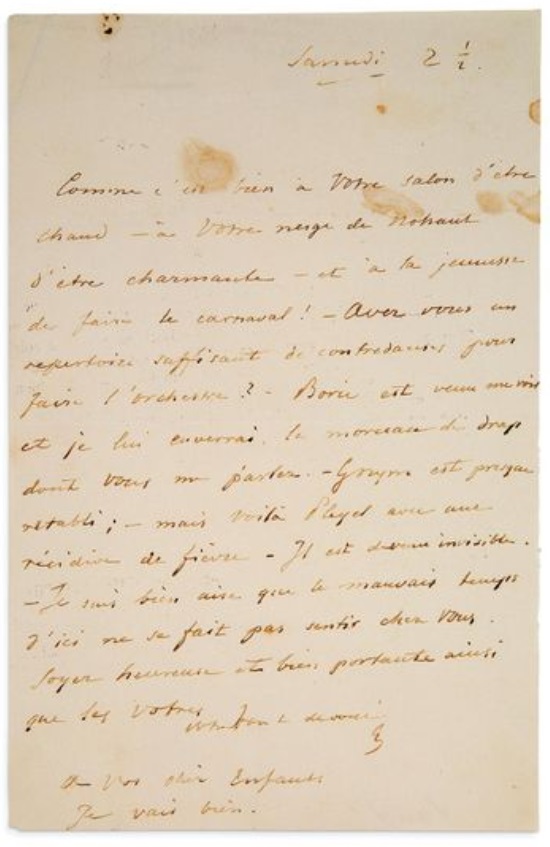 Samedi 2 1/2.
Comme c'est bien à Votre salon d'être
chaud – à Votre neige de Nohant
d'être charmante – et à la jeunesse
de faire le carnaval ! – Avez vous un
repertoire suffisant de contredanses pour
faire l'orchestre ? – Borie est venu me voir
et je lui enverrai le morceau de drap
dont vous me parlez. – Grzym est presque
rétabli ; – mais voilà Pleyel avec une
récidive de fièvre – Il est devenu invisible.
– Je suis bien aise que le mauvais temps
d'ici ne se fait pas sentir chez Vous.
Soyez heureuse et bien portante ainsi
que les Votres
devoué
A vos chers Enfants
Je vais bien.